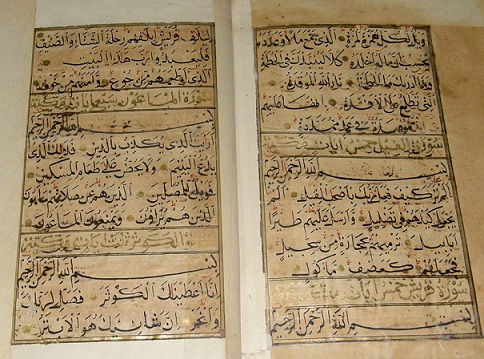 ويل لكل همزة لمزة الذي جمع مالا وعدده
يحسب ان ماله اخلده كلا لينبذن في الحطمة
وما ادريك ما الحطمة نار الله الموقدة
التي تطلع على الافئدة انها عليهم
مؤصدة في عمد ممددة
سورة الفيل خمس ايات
بسم الله الرحمن الرحيم
الم تر كيف فعل ربك باصحب الفيل الم
يجعل كيدهم في تضليل وارسل عليهم طيرا
ابابيل ترميهم بحجارة من سجيل
فجعلهم كعصف ماكول
سورة قريش خمس ايات
بسم الله الرحمن الرحيم
لايلف قريش ايلافهم رحلة الشتاء والصيف
فليعبدوا رب هذا البيت
الذي اطعمهم من جوع وامنهم من خوف
سورة الماعون سبع ايات
بسم الله الرحمن الرحيم
ارايت الذي يكذب بالدين فذلك الذي
يدع اليتيم ولا يحض على طعام المسكين
فويل للمصلين الذين هم عن صلاتهم ساهون
الذين هم يراؤن ويمنعون الماعون
الكوثر ثلاث ايات
بسم الله الرحمن الرحيم
انا اعطينك الكوثر فصل لربك
وانحر ان شانئك هو الابتر